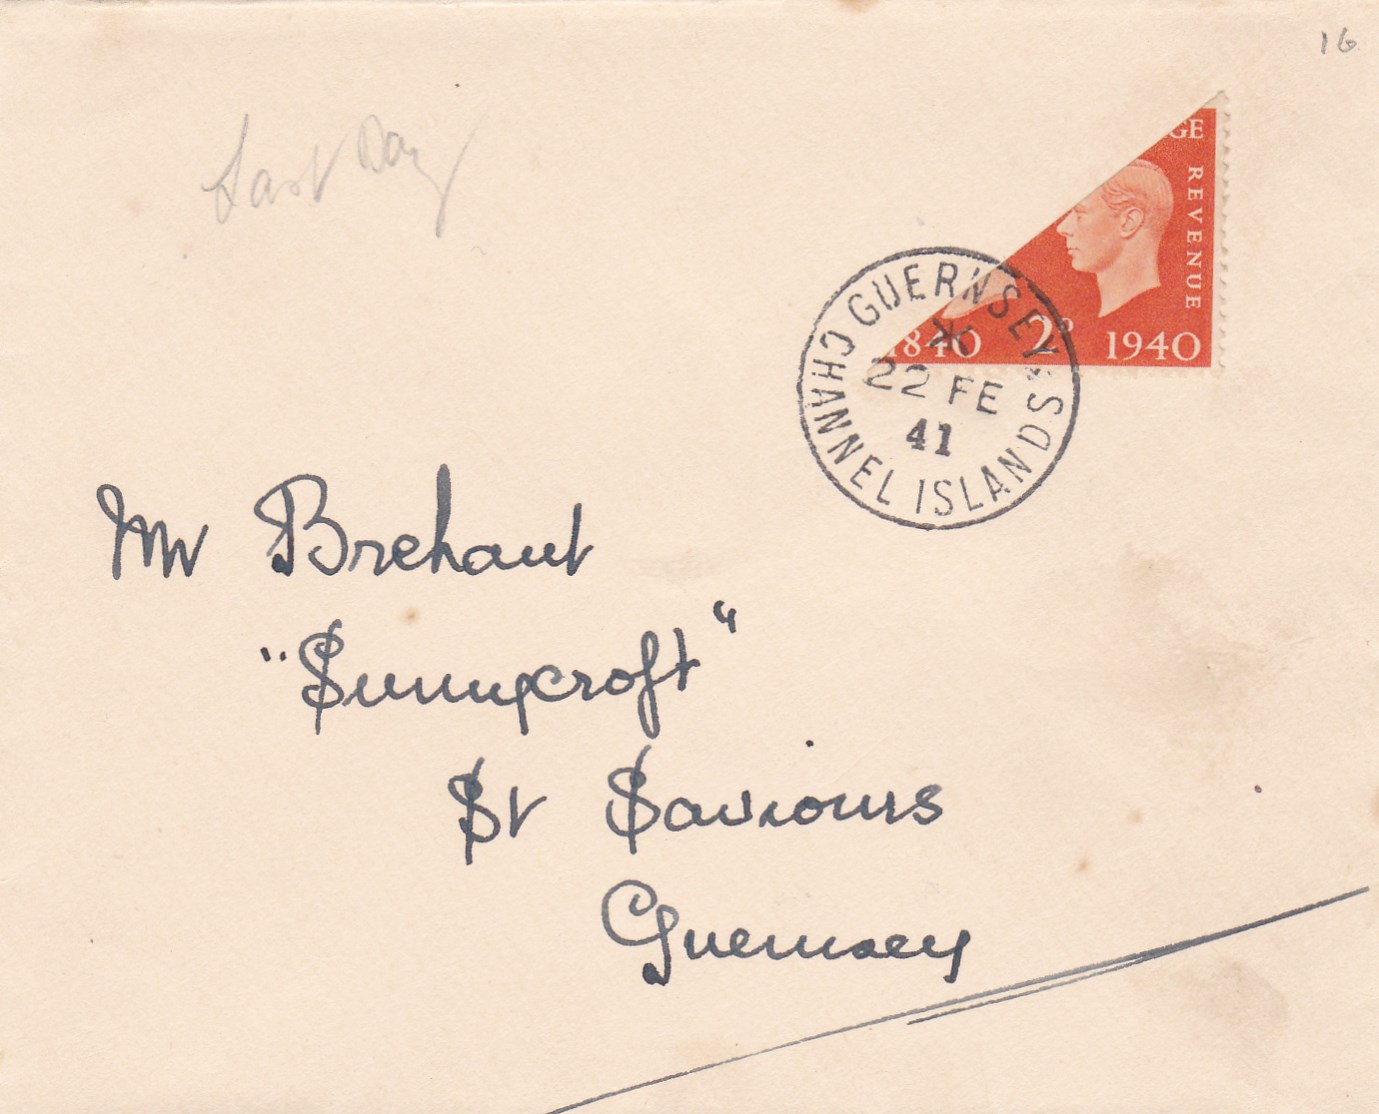 16
Last Day
GE
REVENUE
1840 2D 1940
GUERNSEY
CHANNEL ISLANDS
22 FE
41
Mr Brehaut
"Sunnycroft"
St Saviours
Guernsey